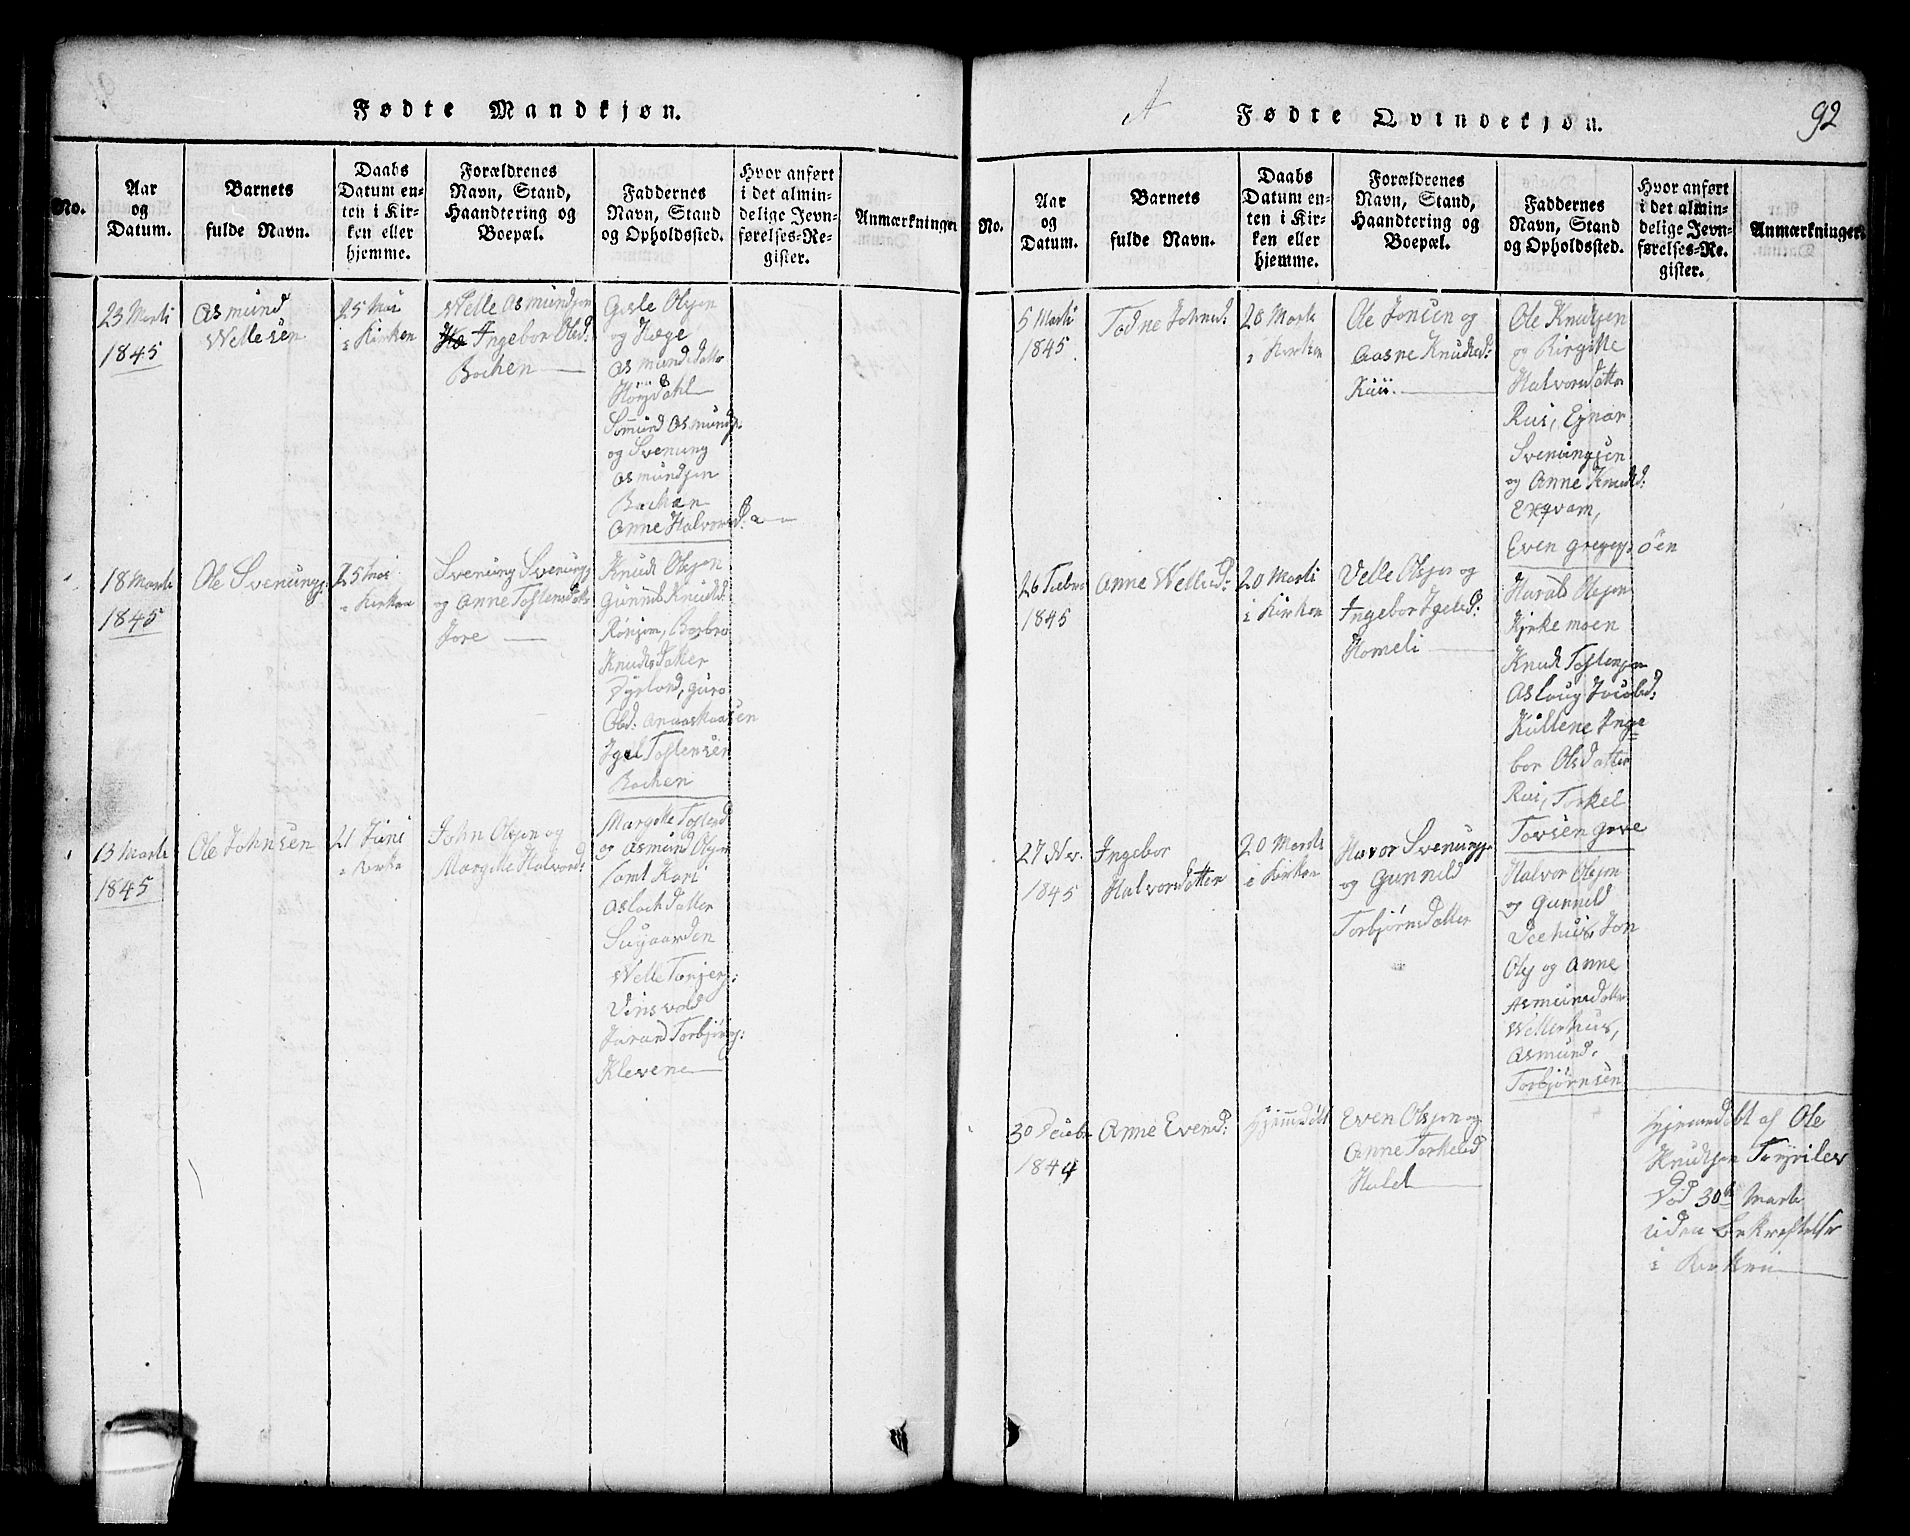 Fødte Mandkjøn.
No.
Aar
og
Datum.
Barnets
fulde Navn.
Daabs
Datum en-
ten i Kir-
ken eller
hjemme.
Forældrenes
Navn, Stand,
Haandtering og
Boepæl.
Faddernes
Navn, Stand
og Opholdssted.
Hvor anført
i det almin-
delige Jevn-
førelses-Re-
gister.
Anmærkninger
23 Marti
1845
Asmund
Vellesen
25 Mai
i Kirken
Velle Asmundsen
Ingebor Olsd:
Bochen
Gisle Olsen
og Hæge
Asmundsdatter
Asmunds:
og Svenung
Asmundsen
Bochen
Anne Halvorsd:
18 Marti
1845
Ole Svenungs:
25 Mai
i Kirken
Svenung Svenungs:
og Anne Tostensdatter
Jore
Knud Olsen
Gunnild Knudsd:
Rønjom, Borbro
Knudsdatter
Dyrland, Guro
Olsd:
Tostensen
Bochen
13 Marti
1845
Ole Johnsen
21 Juni
i Kirken
John Olsen og
Margitte Halvorsd:
Margitte Tostensd
og Asmund Olsen
samt Kari
Aslachdatter
Sugaarden
Velle
Vinsvold
Jorand Torbjørns:
Klevene
A Fødte Qvindekjøn.
92
No.
Aar
og
Datum.
Barnets
fulde Navn.
Daabs
Datum en-
ten i Kir-
ken eller
hjemme.
Forældrenes
Navn, Stand,
Haandtering og
Boepæl.
Faddernes
Navn, Stand
og Opholdssted.
Hvor anført
i det almin-
delige Jevn-
førelses-Re-
gister.
Anmærkninger.
5 Marti
1845
Todne Johnsd:
20 Marti
i Kirken
Ole Jonsen og
Aasne Knudsd:
Ole Knudsen
og Birgitte
Halvorsdatter
Rui, Ejnar
Svenungsen
og Anne Knudsd:
Exqvam,
Even Gregers: øen
26 Febru
1845
Anne Vellesd:
20 Marti
i Kirken
Velle Olsen og
Ingebor
Homeli
Harald Olsen
Kirkemoen
Knud Tostensen
Aslaug Jacobsd:
Kullene Inge
bor Olsdatter
Rui, Torkel
Torsen
27
1845
Ingebor
Halvorsdatter
20 Marti
i Kirken
Havor Svenungs:
og Gunnild
Torbjørnsdatter
Halvor Olsen
og Gunnild
Jon
Ols og Anne
Asmundsdatter
Vellerhus,
Asmund
Torbjørnsen
30 Decbr
1844
Anne Evensd:
Hjemdøbt
Even Olsen og
Anne Torkelsd
Hald
Hjemmedøbt af Ole
Knudsen
Død 30te Marti
uden Bekræftelse
i Kirken